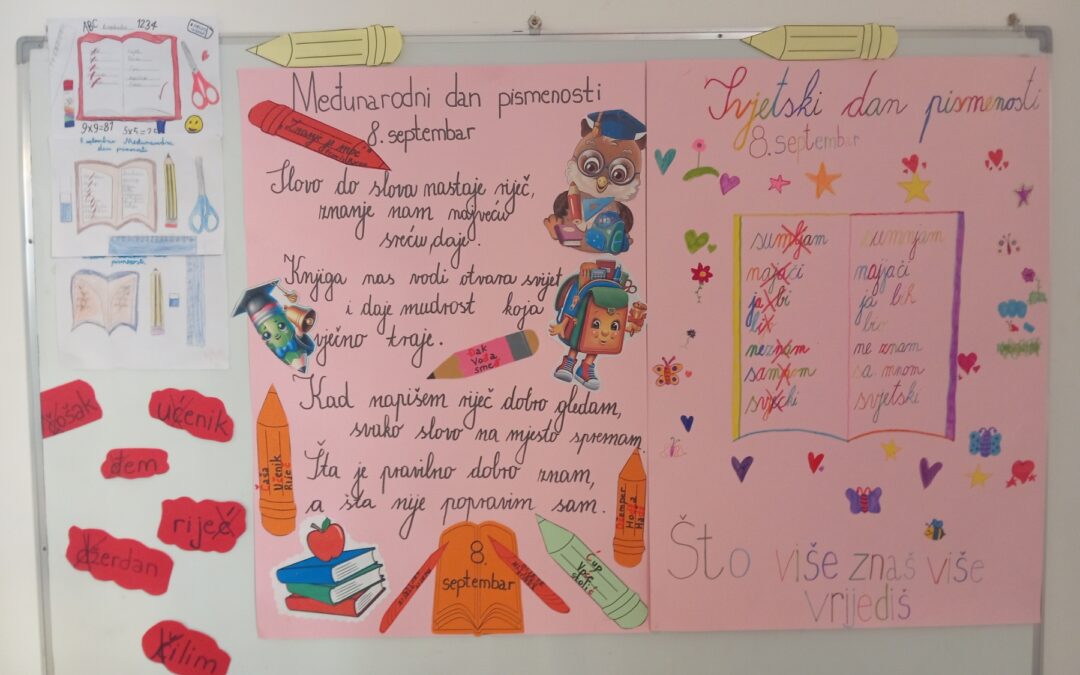 ABC
1234
9x9=81
5x5=2
8. septembar Međunarodni
dan pismenosti
pismenosti
ćošak
učenik
đem
riječ
đžerdan
ćilim
Međunarodni dan pismenosti
8. septembar
Znanje je
Slovo do slova nastaje riječ,
znanje nam najveću
sreću daje.
Knjiga nas vodi otvara svijet
i daje mudrost koja
vječno traje.
Đak
Voda
smeđ
Kad napišem riječ dobro gledam,
svako slovo na mjesto spremam.
Šta je pravilno dobro znam,
a šta nije popravim sam.
Čaša
Učenik
Riječ
Džemper
Hodža
Ćup
Vrće
stolić
8.
septembar
Svjetski dan pismenosti
8. septembar
sumljam sumnjam
najači najjači
ja bi ja bih
bijo bio
neznam ne znam
samnom sa mnom
svjecki svjetski
Što više znaš više
vrijediš